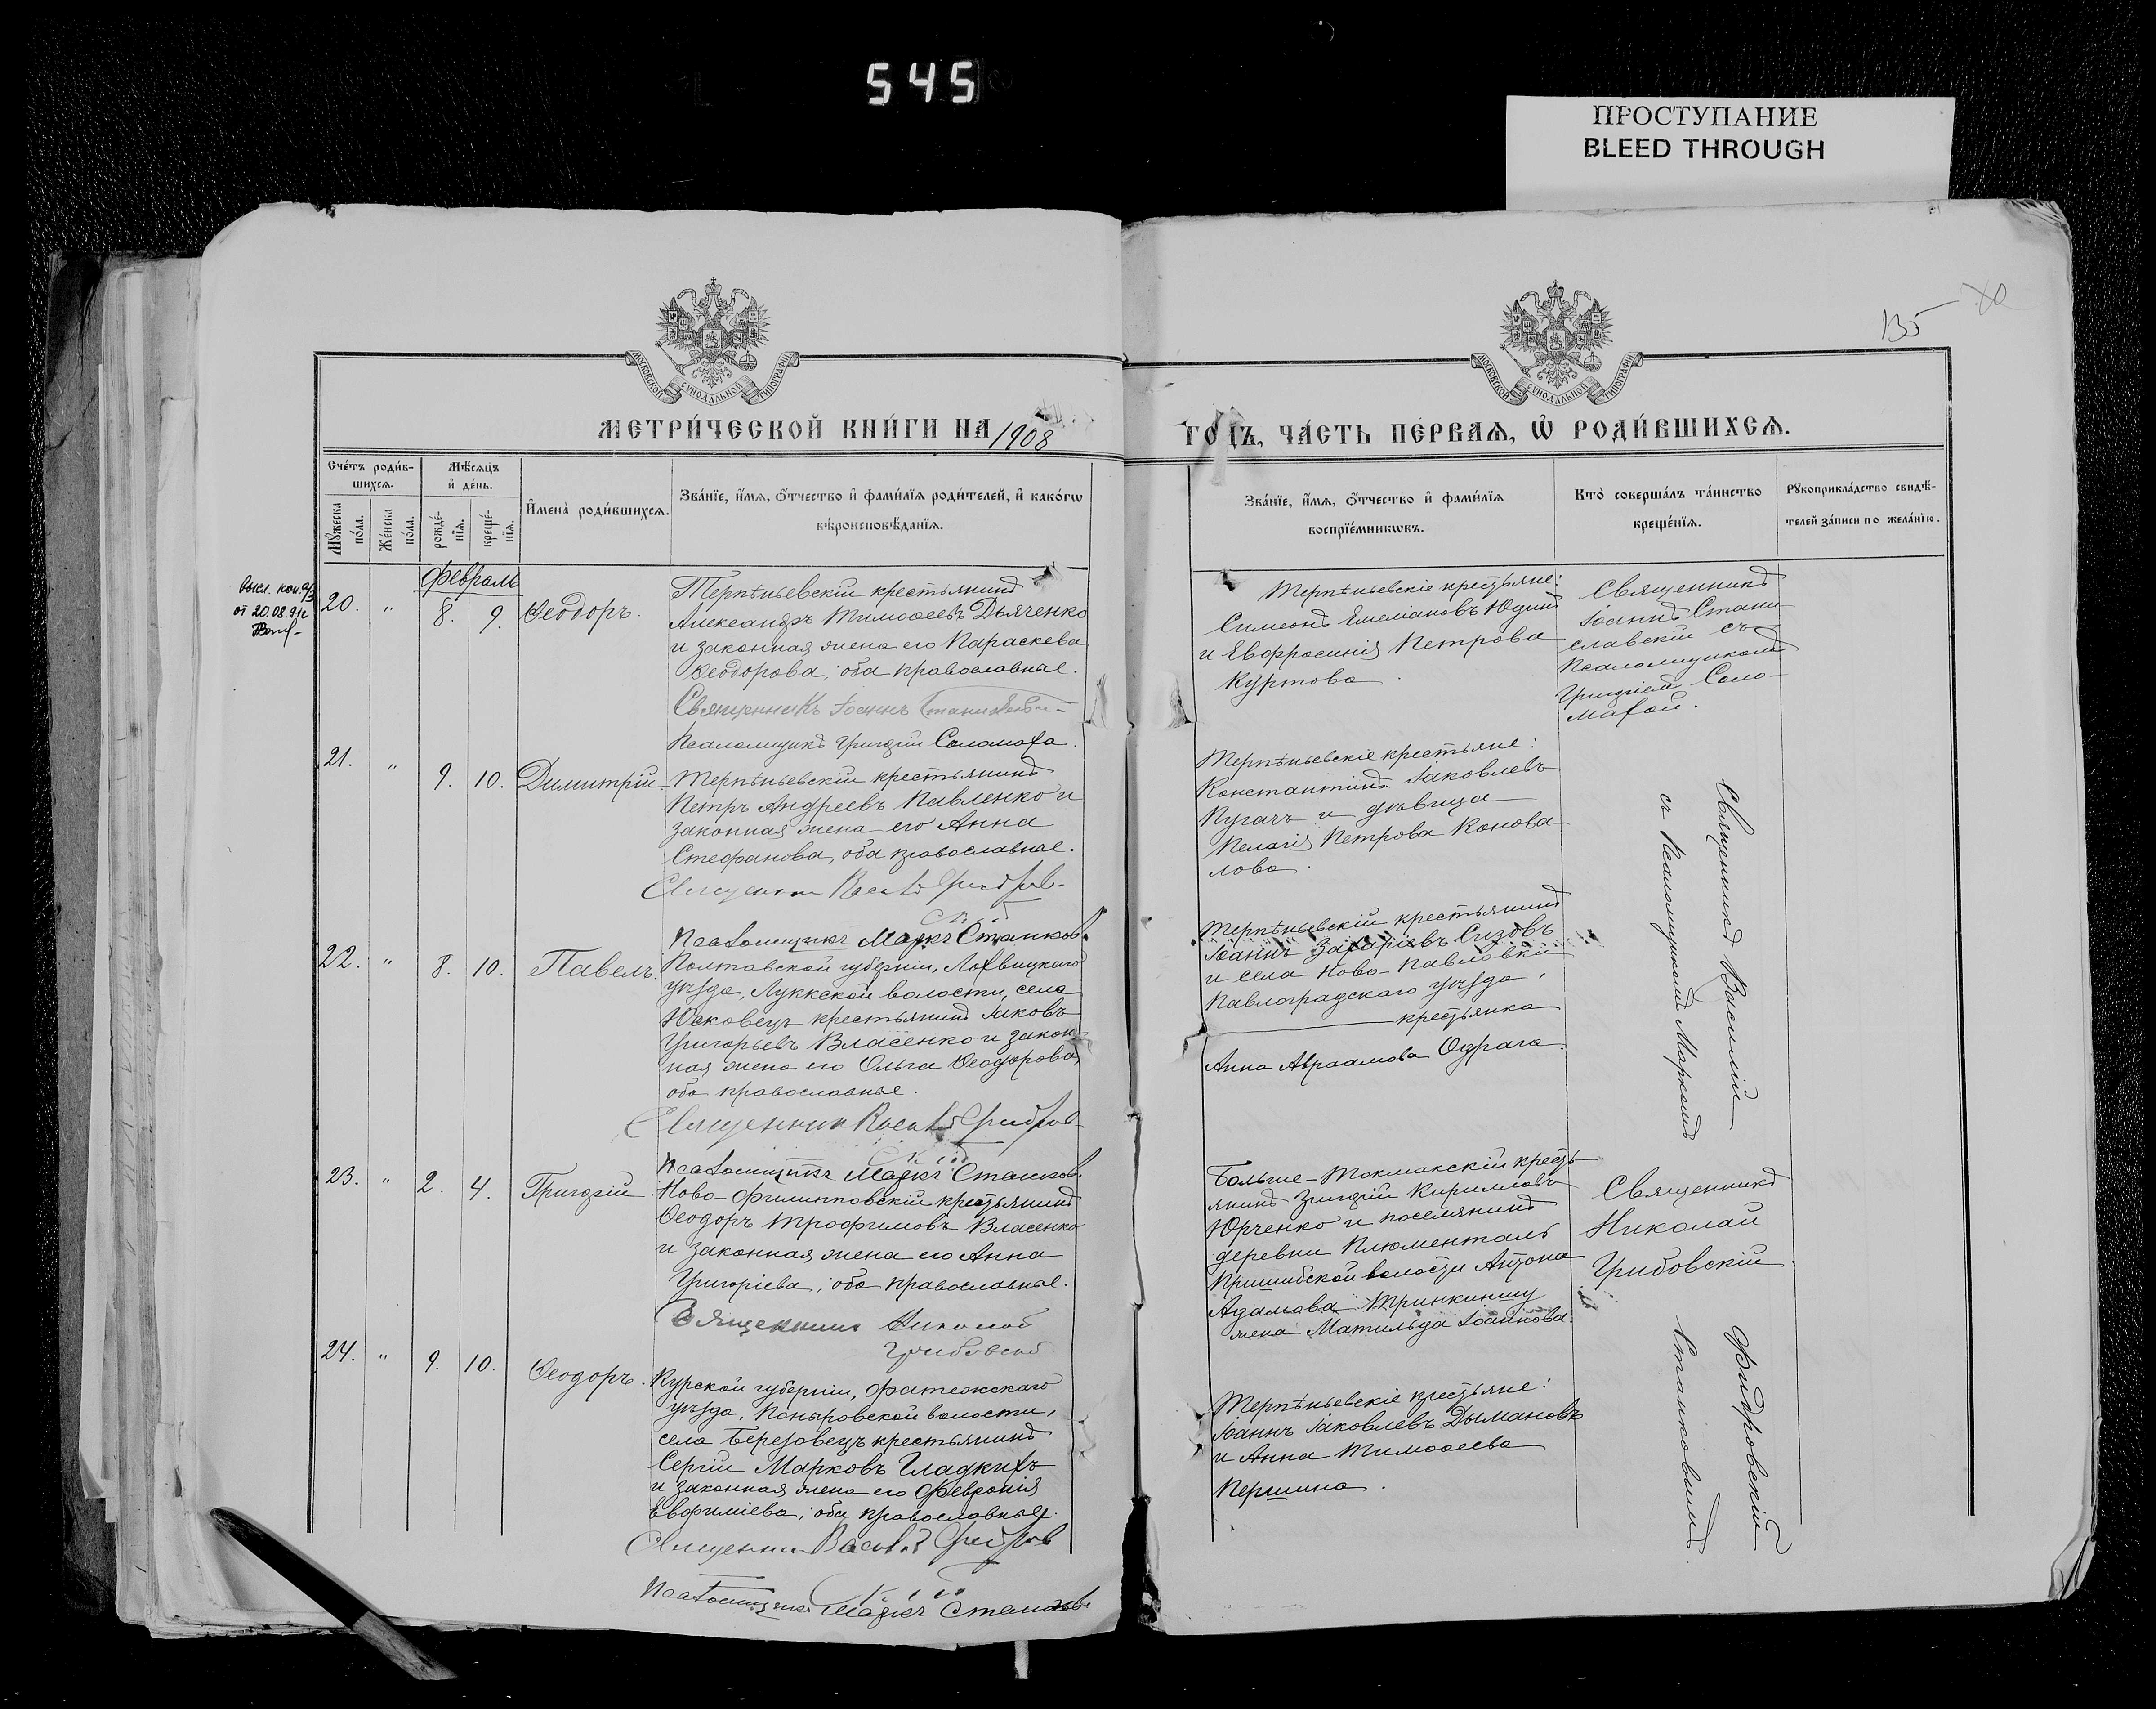 545
ПРОСТУПАНИЕ
BLEED THROUGH
135
МОСКОВСКОЙ СУНОДАЛЬНОЙ ТИПОГРАФІИ
МОСКОВСКОЙ СУНОДАЛЬНОЙ ТИПОГРАФІИ
МЕТРИ́ЧЕСКОЙ КНИ́ГИ НА 1908
ГОДЪ, ЧА́СТЬ ПЕ́РВАѦ, Ѡ҆ РОДИ́ВШИХСѦ.
Сче́тъ роди́в-
шихсѧ.
Мꙋ́жеска по́ла.
Же́нска по́ла.
Мѣ́сѧцъ
и҆ де́нь.
рожде́-
нїѧ.
креще́-
нїѧ.
И҆мена̀ роди́вшихсѧ.
Зва́нїе, и҆́мѧ, ѻ҆́тчество и҆ фами́лїѧ роди́телей, и҆ како́гѡ
вѣроисповѣ́данїѧ.
Зва́нїе, и҆́мѧ, ѻ҆́тчество и҆ фами́лїѧ
воспрїе́мникѡвъ.
Кто̀ соверша́лъ та́инство
креще́нїѧ.
Рꙋкоприкла́дство свидѣ́-
телей за́писи по жела́нїю.
февраль
от 20.08.91г
20. " 8. 9. Ѳеодоръ.
Терпѣньевскій крестьянинъ
Александръ Тимоѳеевъ Дьяченко
и законная жена его Параскева
Ѳеодорова, оба православные.
Священникъ Іоаннъ Станиславскій
Псаломщикъ Григорій Соломаха.
Терпѣньевскіе крестьяне:
Симеонъ Емеліановъ Юдинъ
и Евфросинія Петрова
Куртова.
Священникъ
Іоаннъ Стани-
славскій съ
Псаломщикомъ
Григоріем Соло-
махой.
21. " 9. 10. Димитрій
Терпѣньевскій крестьянинъ
Петръ Андреевъ Павленко и
законная жена его Анна
Стефанова, оба православные.
Псаломщикъ Маркъ Станковъ
Терпѣньевскіе крестьяне:
Константинъ Іаковлевъ
Пугачъ и дѣвица
Пелагія Петрова Конова-
лова.
22. " 8. 10. Павелъ.
Полтавской губерніи, Лохвицкаго
уѣзда, Лукской волости, села
Юсковецъ крестьянинъ Іаковъ
Григорьевъ Власенко и закон-
ная жена его Ольга Ѳеодорова,
оба православные.
Псаломщикъ Маркъ Станковъ.
Терпѣньевскій крестьянинъ
Іоаннъ Захаріевъ Сизовъ
и села Ново-Павловки
Павлоградскаго уѣзда,
крестьянка
Анна Авраамова Одрага.
Священникъ Василій
съ Псаломщикомъ Маркомъ
23. " 2. 4. Григорій.
Ново-Филипповскій крестьянинъ
Ѳеодоръ Трофимовъ Власенко
и законная жена его Анна
Григоріева, оба православные.
Священникъ Николай
Грибовскій
Больше-Токмакскій кресть-
янинъ Григорій Кирилловъ
Юрченко и поселянинъ
деревни Блюменталь
Пришибской волости Антона
Адамова
жена Матильда Іоаннова.
Священникъ
Николай
Грибовскій
24. " 9. 10. Ѳеодоръ.
Курской губерніи, Фатежскаго
уѣзда, Поныровской волости,
села Березовецъ крестьянинъ
Сергій Марковъ Гладкихъ
и законная жена его Февронія
Евфиміева, оба православные.
Псаломщикъ Маркъ Станковъ
Терпѣньевскіе крестьяне:
Іоаннъ Іаковлевъ Дымановъ
и Анна Тимоѳеева
Першина.
Фидровскій
Станковымъ